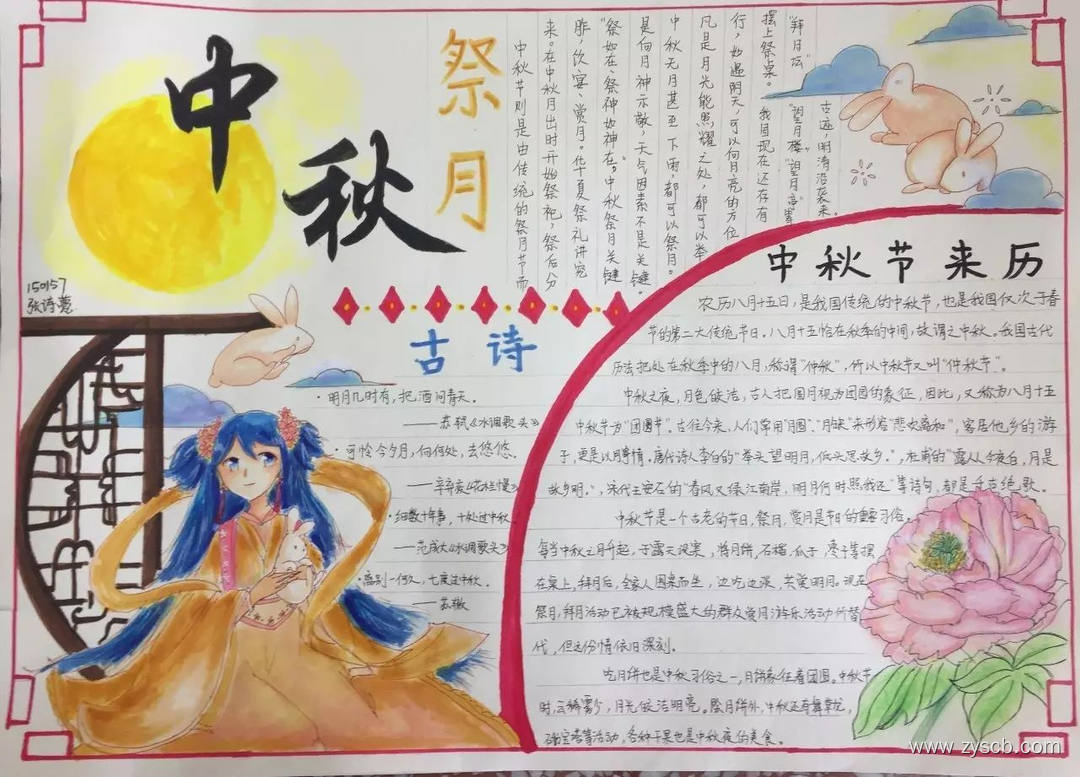 中
秋
祭月
中秋节则是由传统的祭月节而
来。在中秋月出时开始祭祀,祭后分
胙,饮宴、赏月。华夏祭礼讲究
“祭如在,祭神如神在。”中秋祭月关键
是向月神示敬,天气因素不是关键。
中秋无月甚至下雨,都可以祭月。
凡是月光能照耀之处,都可以举
行,如遇阴天,可以向月亮的方位
摆上祭桌。我国现在还存有
“拜月坛”“望月楼”“望月亭”等
古迹,明清沿袭来。
150157
张诗慧
古诗
·明月几时有,把酒问青天。
——苏轼《水调歌头》
·可怜今夕月,向何处,去悠悠。
——辛弃疾《木兰花慢》
·细数十年事,十处过中秋
——范成大《水调歌头》
·离别一何久,七度过中秋。
——苏辙
中秋节来历
农历八月十五日,是我国传统的中秋节,也是我国仅次于春
节的第二大传统节日。八月十五恰在秋季的中间,故谓之中秋。我国古代
历法把处在秋季中的八月,称谓“仲秋”,所以中秋节又叫“仲秋节”。
中秋之夜,月色皎洁,古人把圆月视为团圆的象征,因此,又称为八月十五
中秋节为“团圆节”。古往今来,人们常用“月圆”、“月缺”来形容“悲欢离和”,客居他乡的游
子,更是以月寄情。唐代诗人李白的“举头望明月,低头思故乡。”,杜甫的“露从今夜白,月是
故乡明。”,宋代王安石的“春风又绿江南岸,明月何时照我还”等诗句,都是千古绝歌。
中秋节是一个古老的节日,祭月,赏月是节日的重要习俗。
每当中秋之月升起,于露天设案,将月饼,石榴,瓜子,枣子等摆
在桌上,拜月后,全家人围桌而坐,边吃边谈,共赏明月。现在
祭月,拜月活动已被规模盛大的群众赏月游乐活动所替
代,但这份情依旧深刻。
吃月饼也是中秋习俗之一,月饼象征着团圆。中秋节
时,云稀雾少,月光皎洁明亮。除月饼外,中秋还有舞草龙,
砌宝塔等活动,各种干果也是中秋夜的美食。
www.zyscb.com